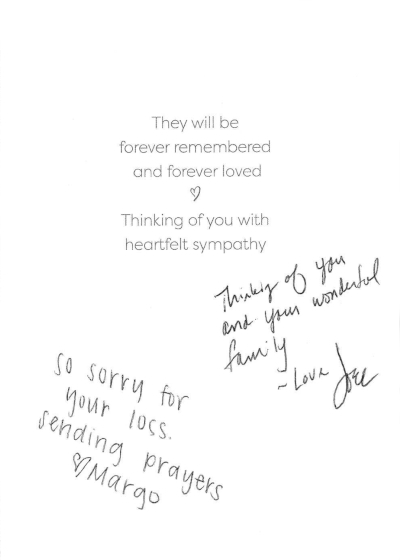 They will be
forever remembered
and forever loved
♡
Thinking of you with
heartfelt sympathy
Thinking of you
and your wonderful
family
~ Love Joee
so sorry for
your loss.
sending prayers
♡Margo